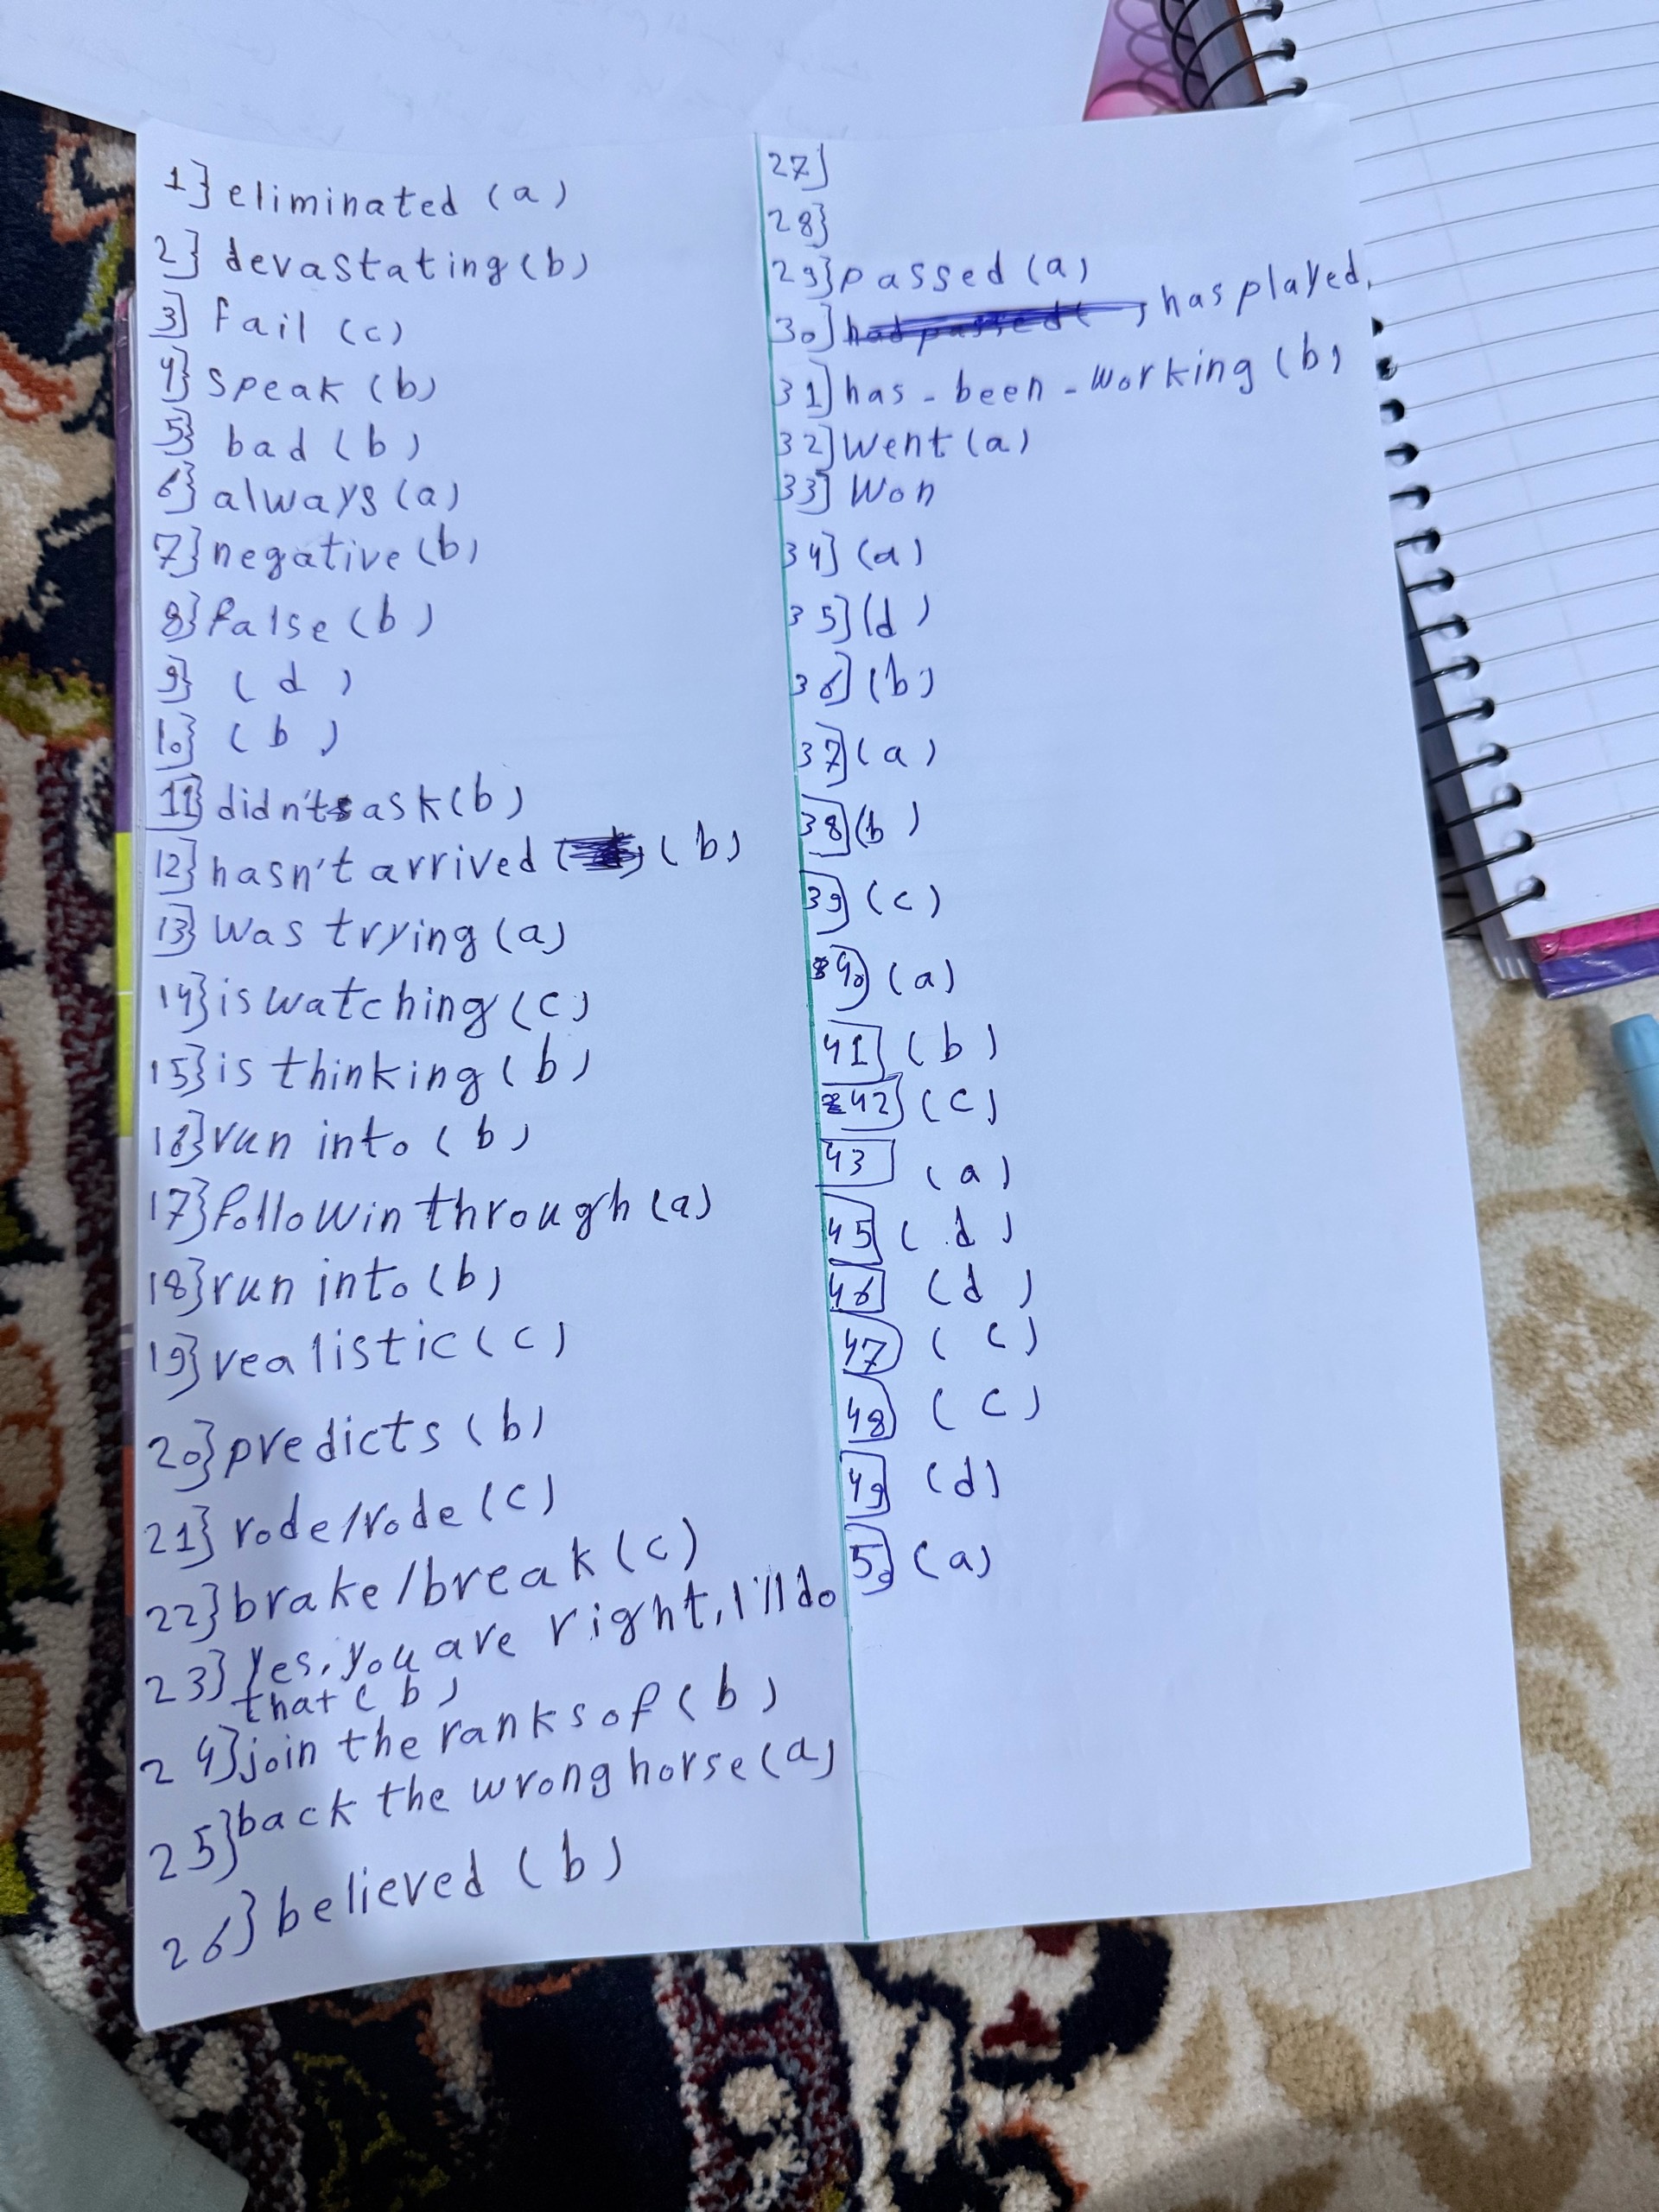 1} eliminated (a)
2} devastating (b)
3} fail (c)
4} speak (b)
5} bad (b)
6} always (a)
7} negative (b)
8} false (b)
9} (d)
10} (b)
11} didn't ask (b)
12} hasn't arrived (b)
13} was trying (a)
14} is watching (c)
15} is thinking (b)
16} run into (b)
17} followin through (a)
18} run into (b)
19} realistic (c)
20} predicts (b)
21} rode/rode (c)
22} brake/break (c)
23} Yes, you are right, I'll do
that (b)
24} join the ranks of (b)
25} back the wrong horse (a)
26} believed (b)
27]
28}
29} passed (a)
30] had passed ( ) has played,
31] has-been-working (b)
32] went (a)
33] Won
34} (a)
35] (d)
36] (b)
37] (a)
38] (b)
39] (c)
40) (a)
41] (b)
42] (c)
43 (a)
45] (d)
46] (d)
47) (c)
48) (c)
49] (d)
50] (a)